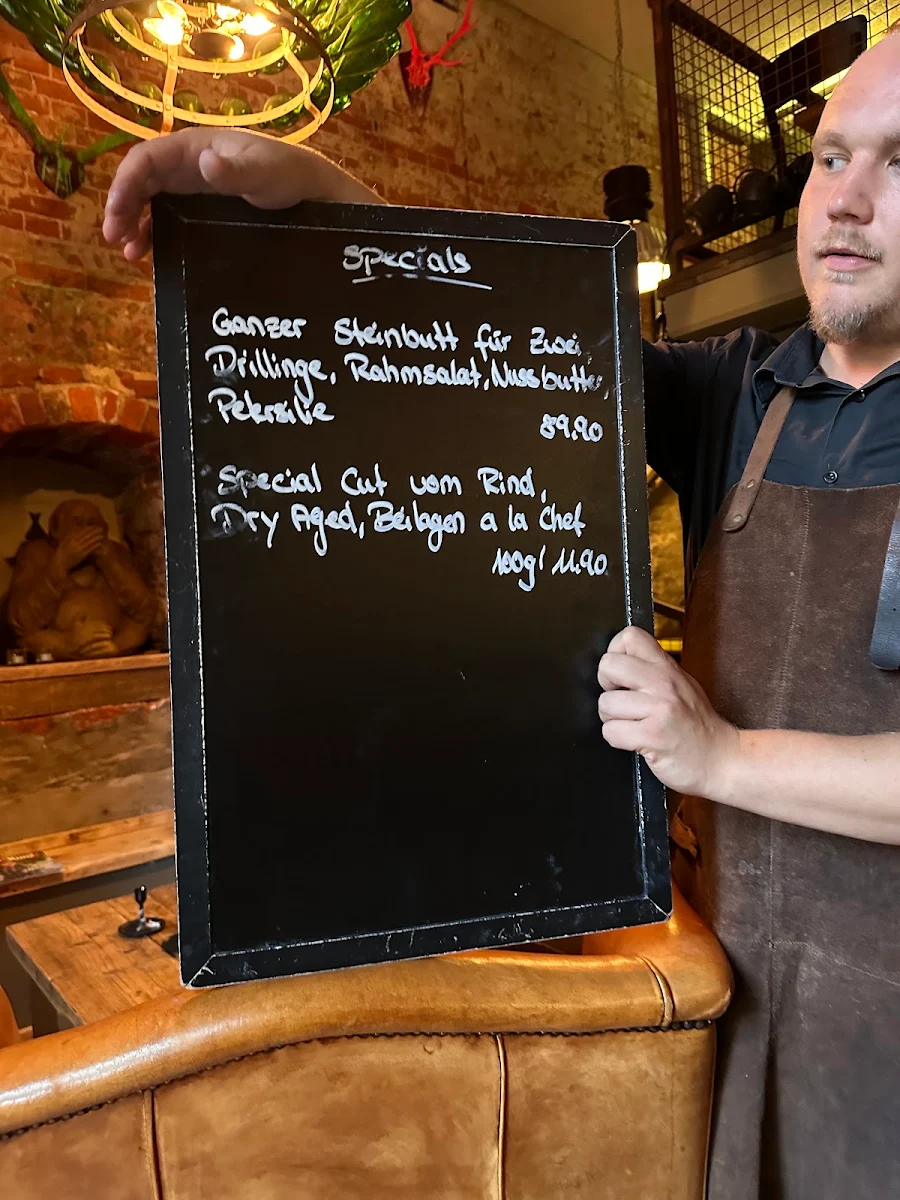 Specials
Ganzer Steinbutt für Zwei,
Drillinge, Rahmsalat, Nussbutter,
Petersilie
89.90
Special Cut vom Rind,
Dry Aged, Beilagen a la Chef
100g/ 11.90